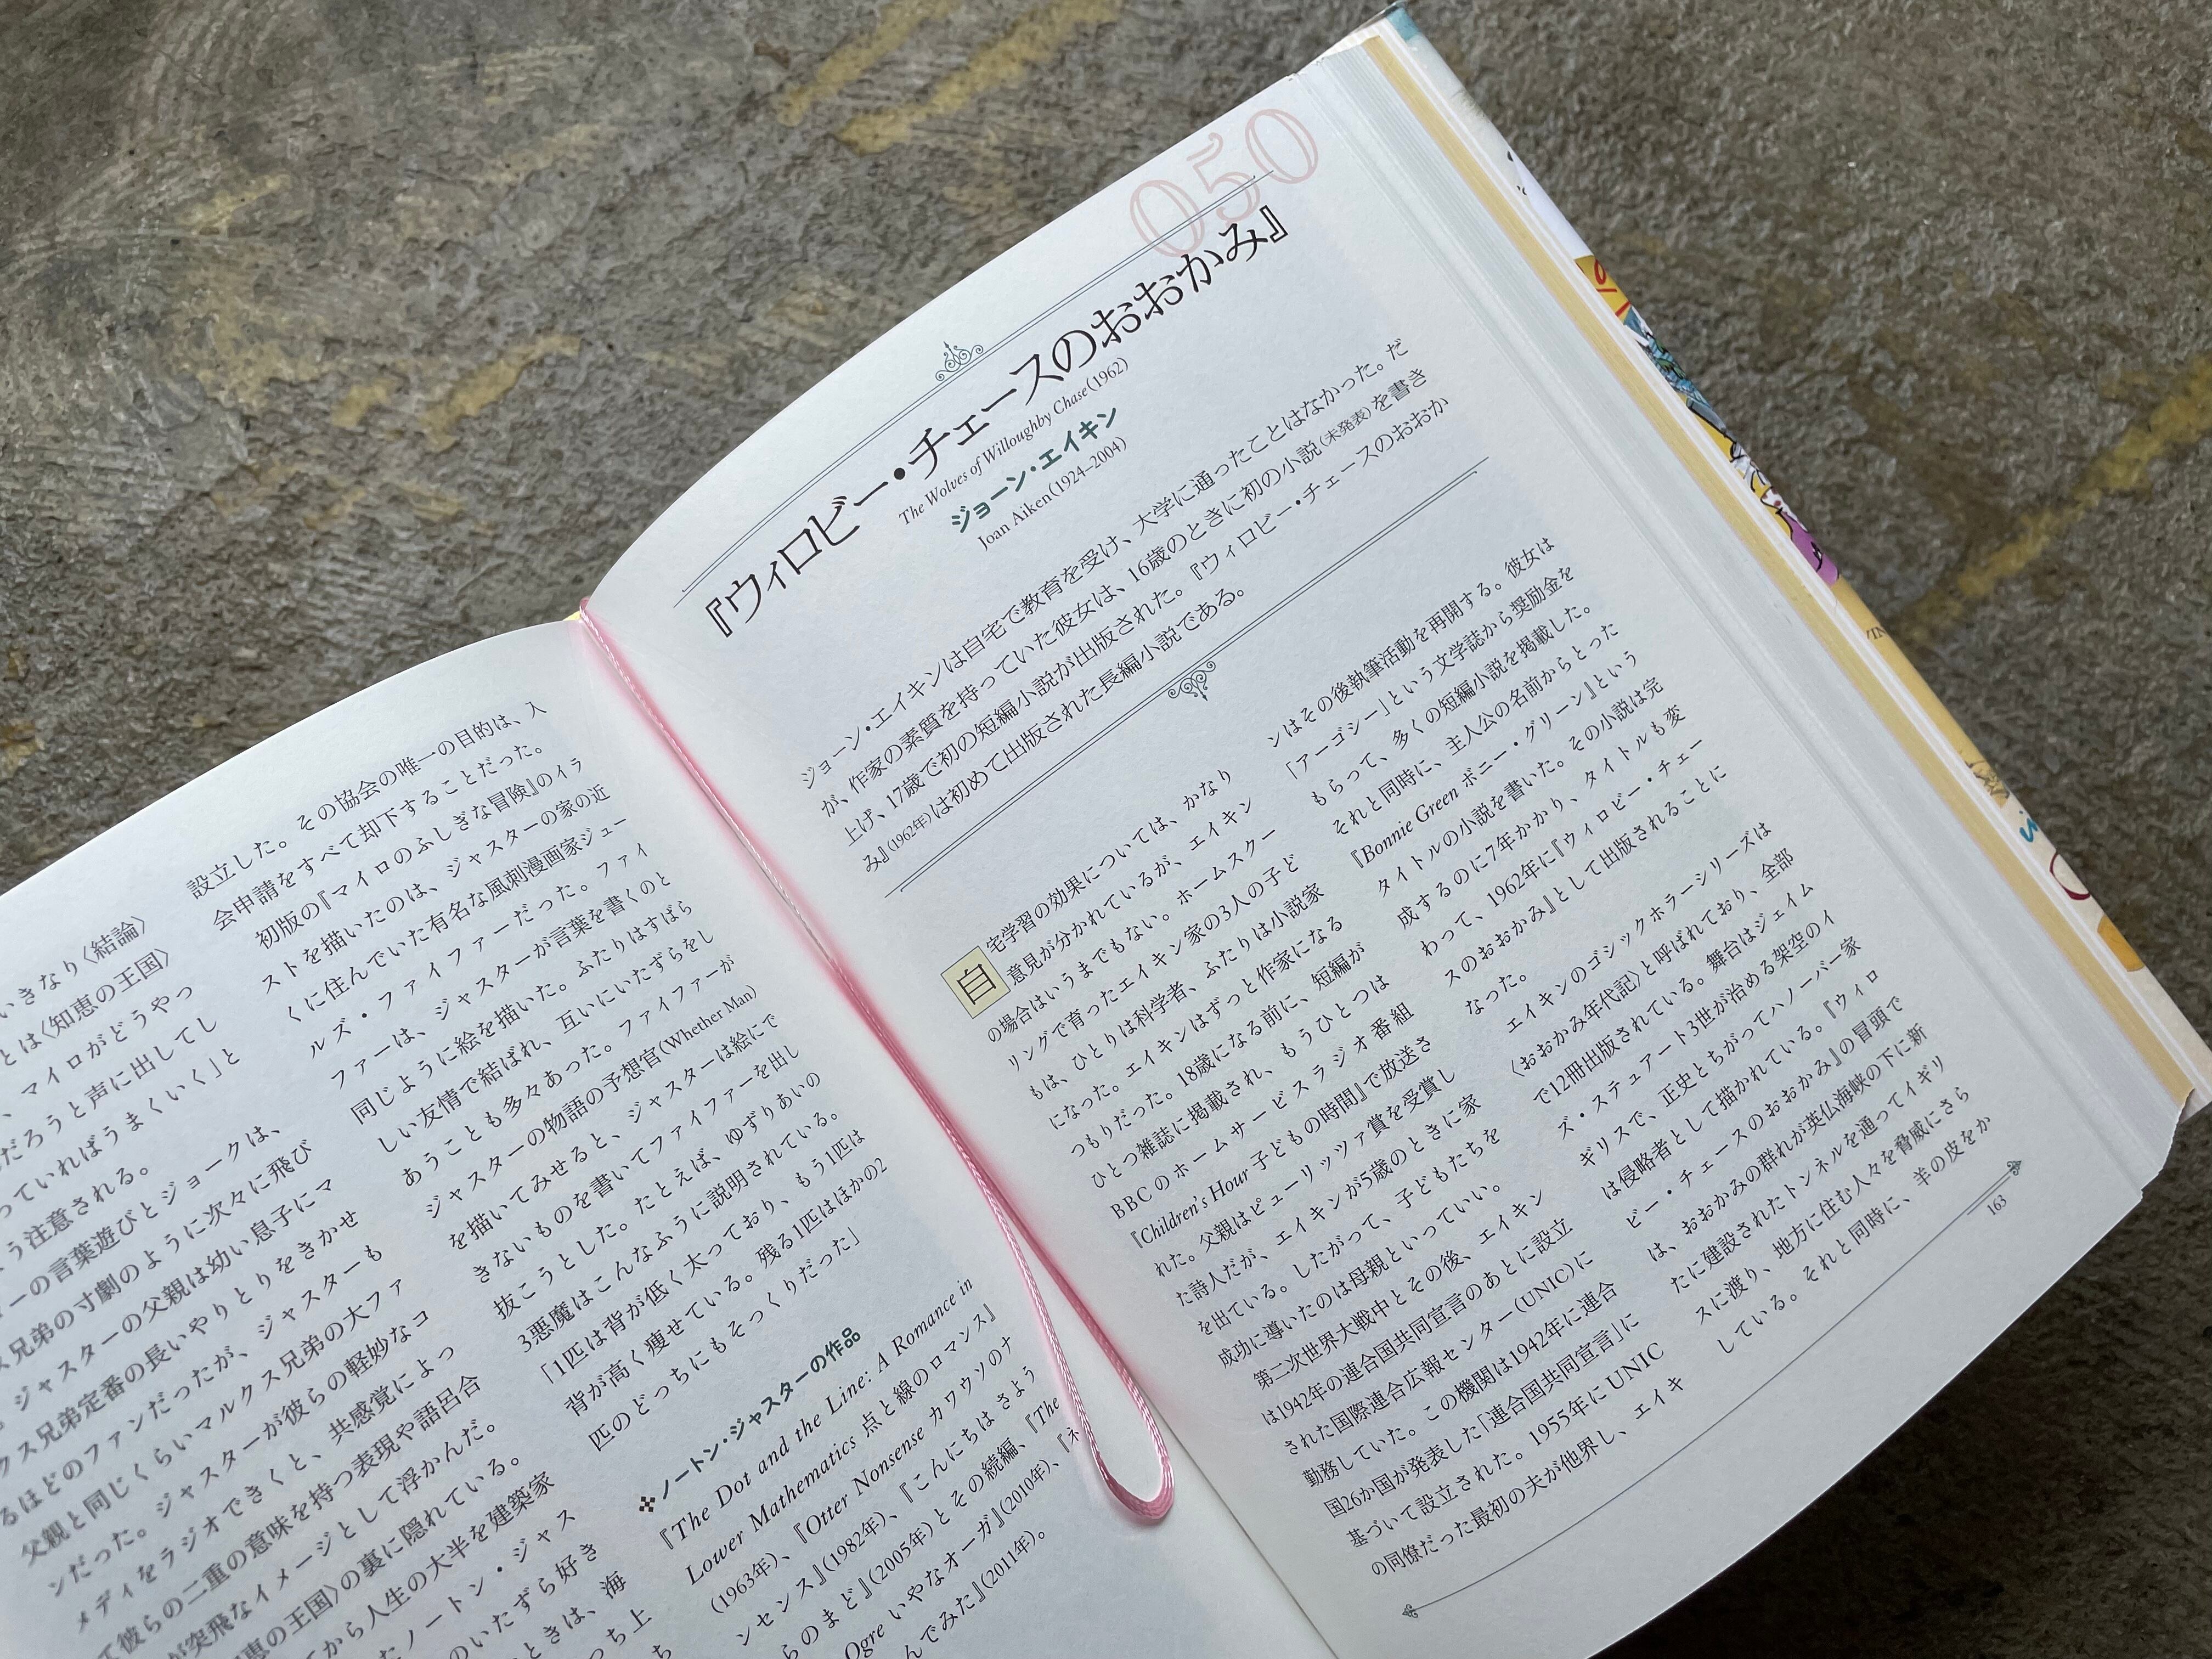 いきなり〈結論〉
とは〈知恵の王国〉
、マイロがどうやっ
だろうと声に出してし
っていればうまくいく」と
う注意される。
ーの言葉遊びとジョークは、
兄弟の寸劇のように次々に飛び
。ジャスターの父親は幼い息子にマ
クス兄弟定番の長いやりとりをきかせ
るほどのファンだったが、ジャスターも
父親と同じくらいマルクス兄弟の大ファ
ンだった。ジャスターが彼らの軽妙なコ
メディをラジオできくと、共感覚によっ
て彼らの二重の意味を持つ表現や語呂合
が突飛なイメージとして浮かんだ。
恵の王国〉の裏に隠れている。
てから人生の大半を建築家
たノートン・ジャス
のいたずら好き
ときは、海
つち上
ち
設立した。その協会の唯一の目的は、入
会申請をすべて却下することだった。
初版の『マイロのふしぎな冒険』のイラ
ストを描いたのは、ジャスターの家の近
くに住んでいた有名な風刺漫画家ジュー
ルズ・ファイファーだった。ファイ
ファーは、ジャスターが言葉を書くのと
同じように絵を描いた。ふたりはすばら
しい友情で結ばれ、互いにいたずらをし
あうことも多々あった。ファイファーが
ジャスターの物語の予想官(Whether Man)
を描いてみせると、ジャスターは絵にで
きないものを書いてファイファーを出し
抜こうとした。たとえば、ゆずりあいの
3悪魔はこんなふうに説明されている。
「1匹は背が低く太っており、もう1匹は
背が高く痩せている。残る1匹はほかの2
匹のどっちにもそっくりだった」
ノートン・ジャスターの作品
『The Dot and the Line: A Romance in
Lower Mathematics 点と線のロマンス』
(1963年)、『Otter Nonsense カワウソのナ
ンセンス』(1982年)、『こんにちは さよう
らのまど』(2005年)とその続編、『The
Ogre いやなオーガ』(2010年)、『ネ
んでみた』(2011年)。
050
『ウィロビー・チェースのおおかみ』
The Wolves of Willoughby Chase(1962)
ジョーン・エイキン
Joan Aiken(1924–2004)
ジョーン・エイキンは自宅で教育を受け、大学に通ったことはなかった。だ
が、作家の素質を持っていた彼女は、16歳のときに初の小説(未発表)を書き
上げ、17歳で初の短編小説が出版された。『ウィロビー・チェースのおおか
み』(1962年)は初めて出版された長編小説である。
自宅学習の効果については、かなり
意見が分かれているが、エイキン
の場合はいうまでもない。ホームスクー
リングで育ったエイキン家の3人の子ど
もは、ひとりは科学者、ふたりは小説家
になった。エイキンはずっと作家になる
つもりだった。18歳になる前に、短編が
ひとつ雑誌に掲載され、もうひとつは
BBCのホームサービスラジオ番組
『Children's Hour 子どもの時間』で放送さ
れた。父親はピューリッツァ賞を受賞し
た詩人だが、エイキンが5歳のときに家
を出ている。したがって、子どもたちを
成功に導いたのは母親といっていい。
第二次世界大戦中とその後、エイキン
は1942年の連合国共同宣言のあとに設立
された国際連合広報センター(UNIC)に
勤務していた。この機関は1942年に連合
国26か国が発表した「連合国共同宣言」に
基づいて設立された。1955年にUNIC
の同僚だった最初の夫が他界し、エイキ
ンはその後執筆活動を再開する。彼女は
「アーゴシー」という文学誌から奨励金を
もらって、多くの短編小説を掲載した。
それと同時に、主人公の名前からとった
『Bonnie Green ボニー・グリーン』という
タイトルの小説を書いた。その小説は完
成するのに7年かかり、タイトルも変
わって、1962年に『ウィロビー・チェー
スのおおかみ』として出版されることに
なった。
エイキンのゴシックホラーシリーズは
〈おおかみ年代記〉と呼ばれており、全部
で12冊出版されている。舞台はジェイム
ズ・ステュアート3世が治める架空のイ
ギリスで、正史とちがってハノーバー家
は侵略者として描かれている。『ウィロ
ビー・チェースのおおかみ』の冒頭で
は、おおかみの群れが英仏海峡の下に新
たに建設されたトンネルを通ってイギリ
スに渡り、地方に住む人々を脅威にさら
している。それと同時に、羊の皮をか
163